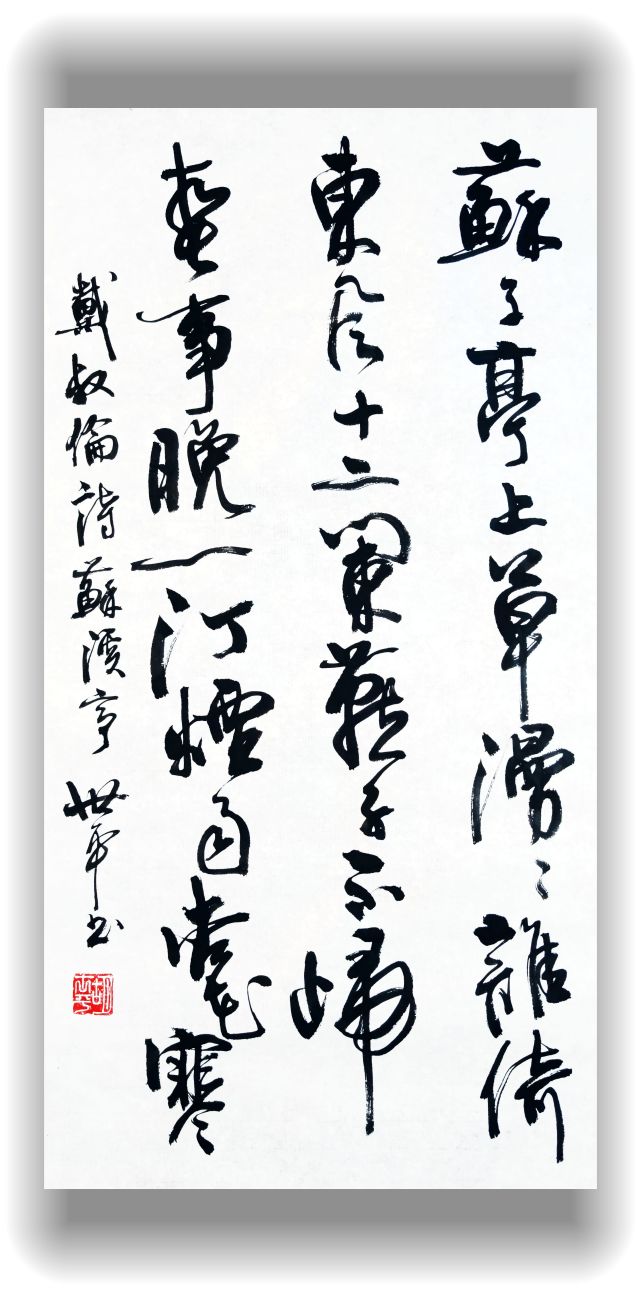 蘇溪亭上草漫〻誰倚
東風十二闌燕子不歸
春事晚一汀煙雨杏花寒
戴叔倫詩蘇溪亭 世平書